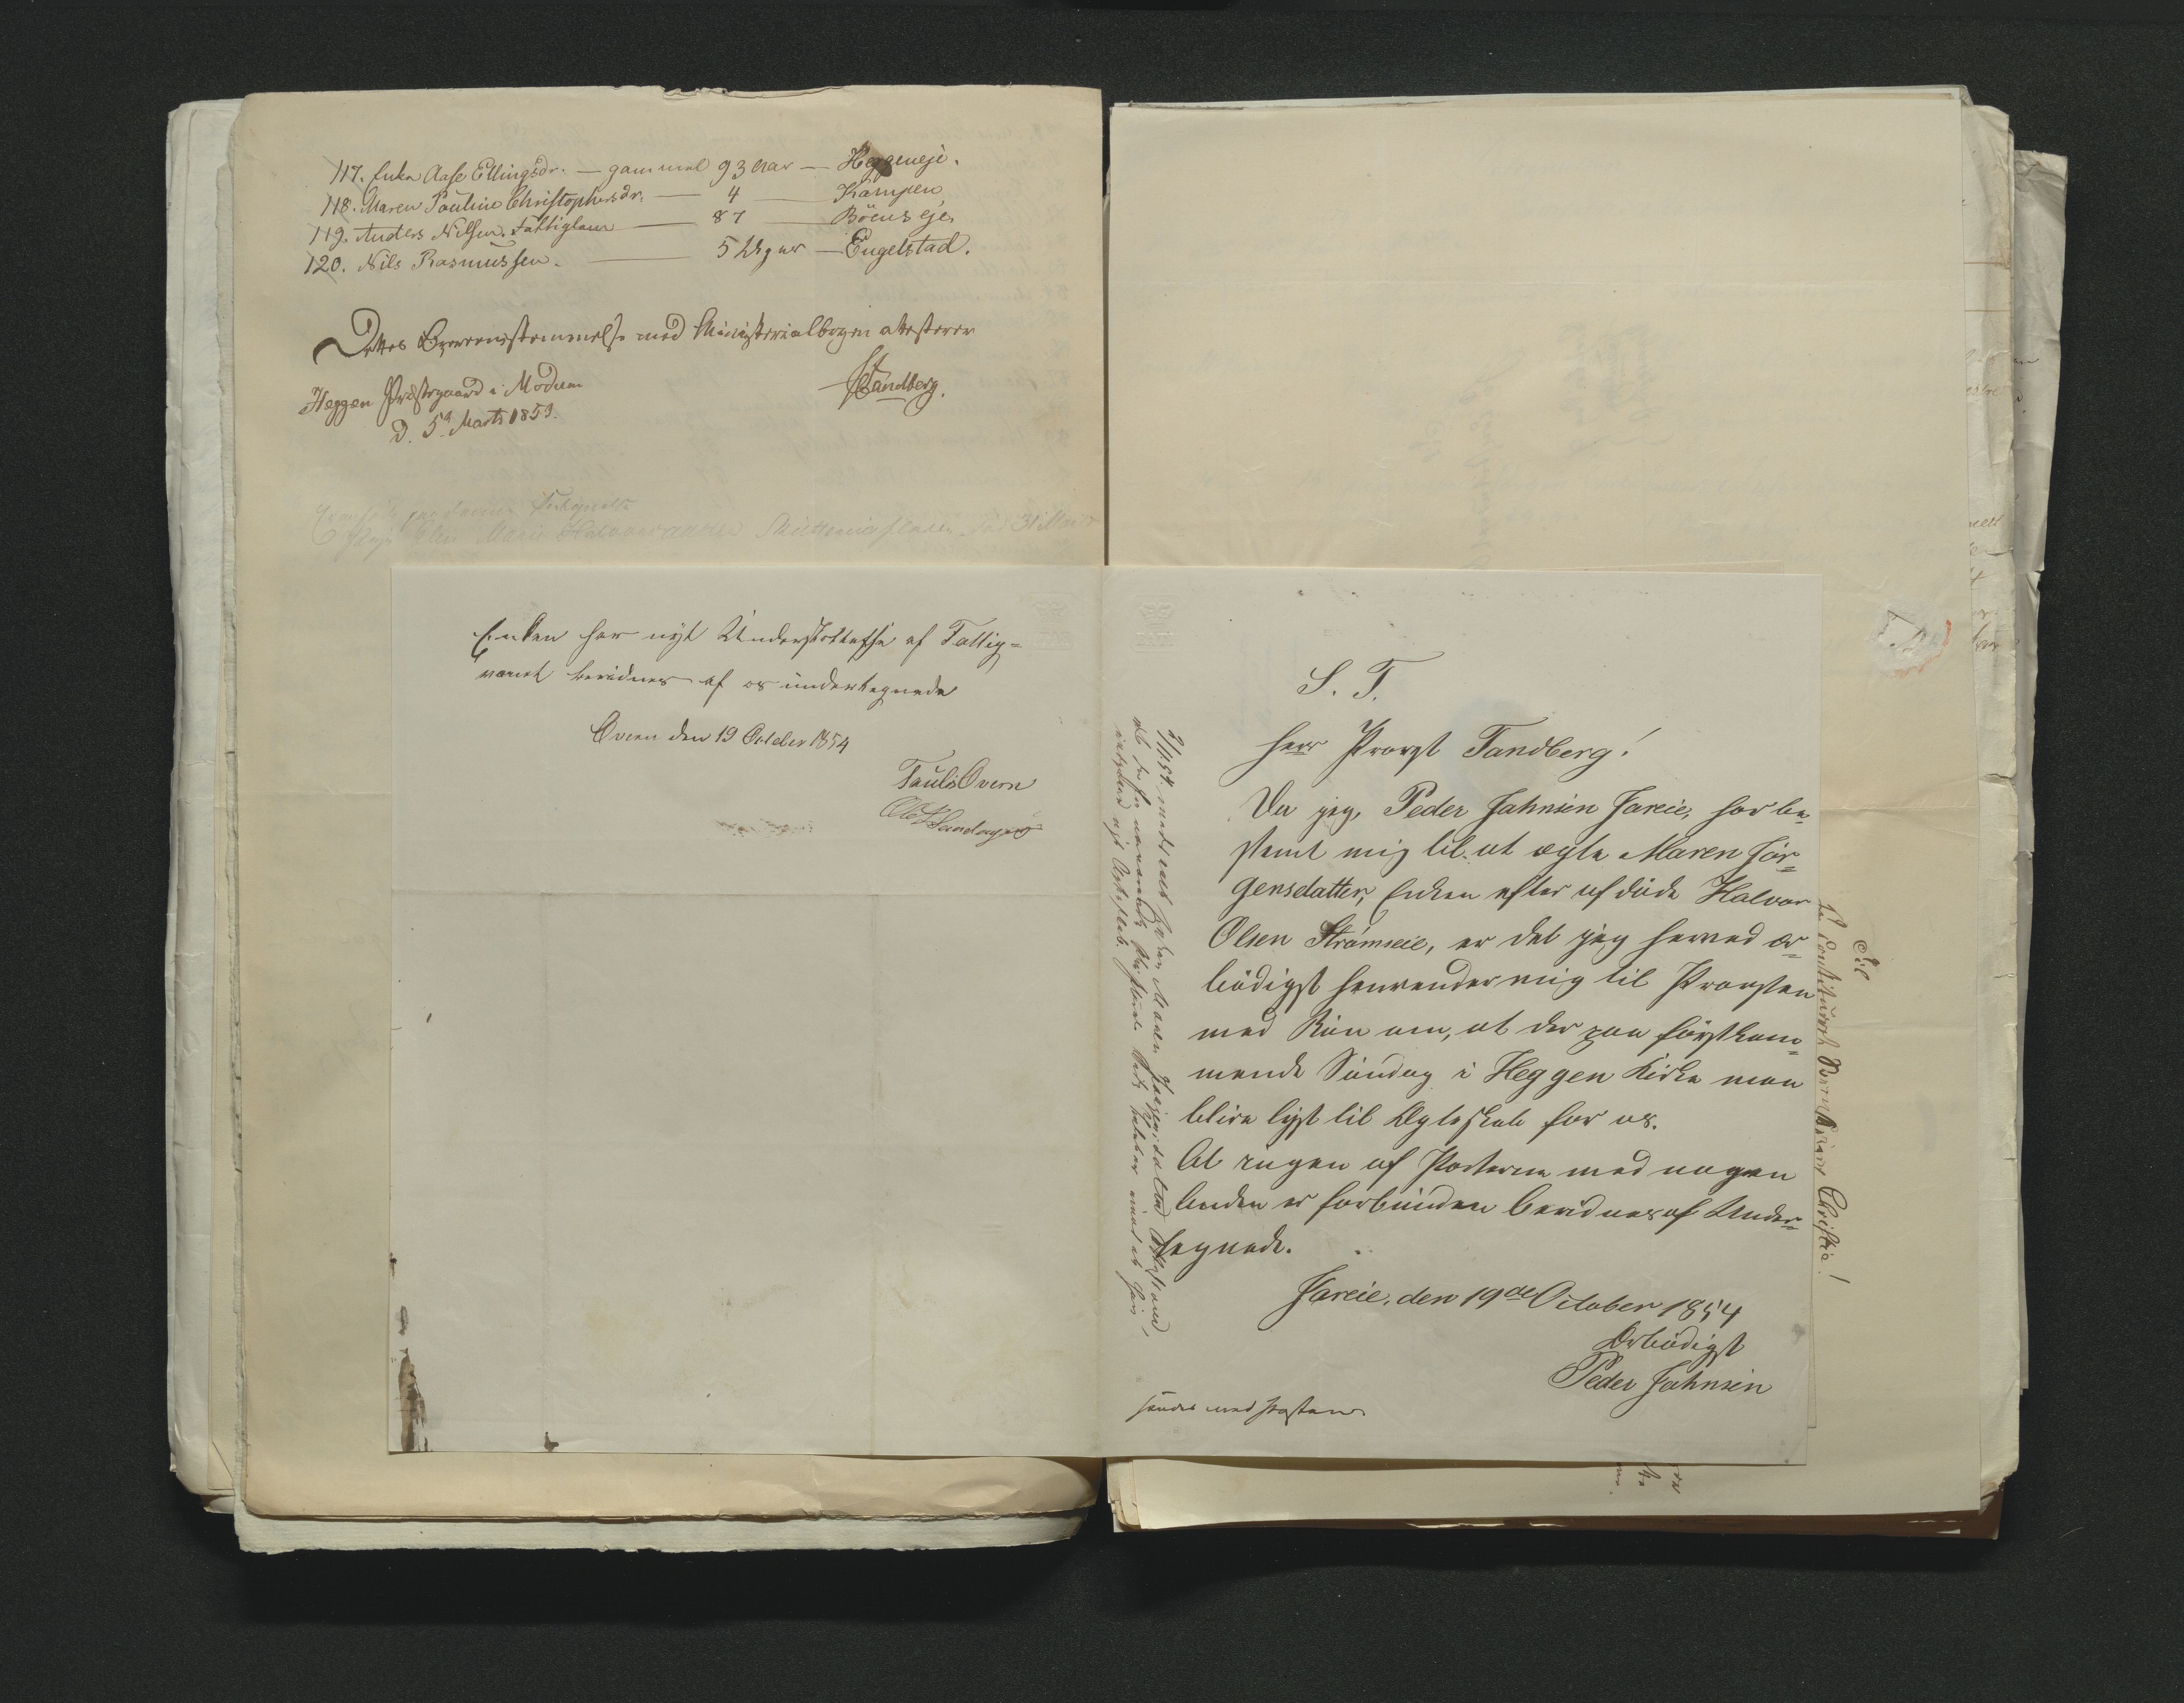 117. Enke Aase Ellingsdr. — gammel 93 Aar — Heggeneje.
118. Maren Pauline Christophersdr. — 4 — Kampen
119. Anders Nilsen. Fattiglem — 87 — Böenseje
120. Nils Rasmussen. — 5 Uger — Engelstad.
Dettes Overensstemmelse med Ministerialbogen attesterer
Heggen Præstegaard i Modum
d. 5te Marts 1853.
Tandberg.
Enken har nyt Understøttelse af Fattig=
væsnet bevidnes af os undertegnede
Overn den 19 October 1854
Paul Overn
S. T.
Herr Provst Tandberg!
Da jeg, Peder Jahnsen Jareie, har be=
stemt mig til at ægte Maren Jör=
gensdatter, Enken efter afdöde Halvor
Olsen Strömseie, er det jeg herved ær=
bödigst henvender mig til Provsten
med Bön om, at der paa förstkom=
mende Söndag i Heggen Kirke maa
blive lyst til Ægteskab for os.
At ingen af Parterne med nogen
Anden er forbunden bevidnes af Under=
tegnede.
Jareie, den 19de October 1854
Ærbödigst
Peder Jahnsen
sendes med Posten
Enken Maren Jørgensdatter
indgaaer nyt Ægteskab.
Til